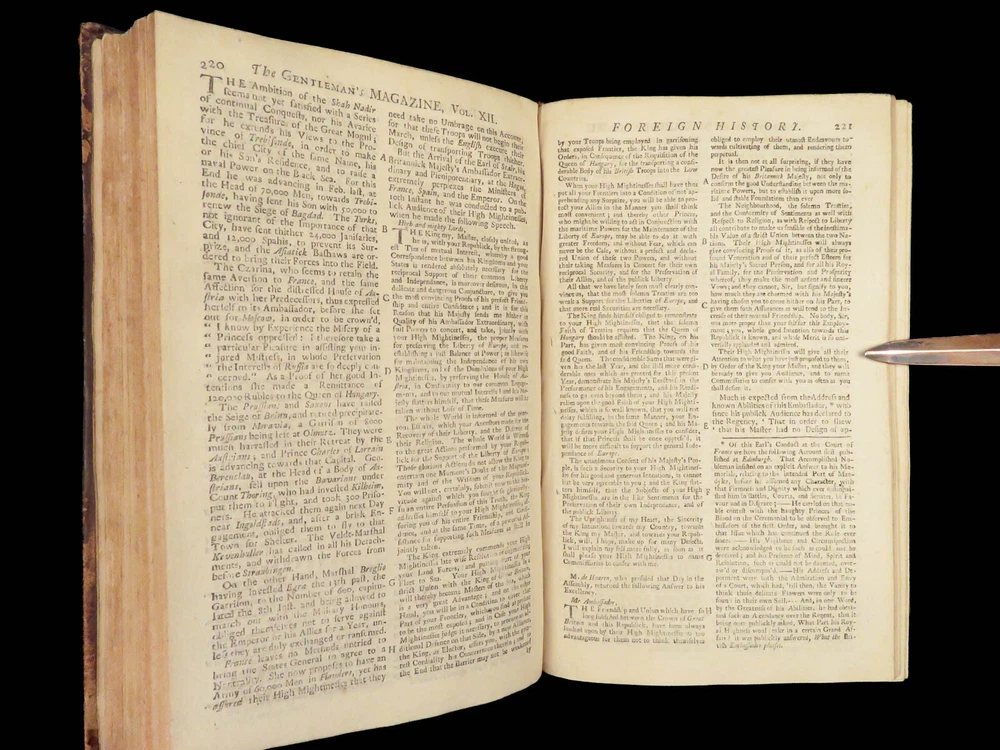 220
The GENTLEMAN'S MAGAZINE, VOL. XII.
THE Ambition of the Shah Nadir
seems not yet satisfied with a Series
of continual Conquests, nor his Avarice
with the Treasures of the Great Mogul;
for he extends his Views to the Pro-
vince of Trebisonde, in order to make
the chief City of the same Name, his
or his Son's Residence, and to raise a
naval Power on the Black Sea. For this
End he was advancing in Feb. last, at
the Head of 70,000 Men, towards Trebi-
sonde, having sent his Son with 50,000 to
renew the Siege of Bagdad. The Turks,
not ignorant of the Importance of that
City, have sent thither 24,000 Janisaries,
and 12,000 Spahis, to prevent its Sur-
prize, and the Asiatick Bashaws are or-
dered to bring their Forces into the Field.
The Czarina, who seems to retain the
same Aversion to France, and the same
Affection for the distressed House of Au-
stria with her Predecessors, thus expressed
herself to its Ambassador, before she set
out for Moscow, in order to be crown'd,
“ I know by Experience the Misery of a
“ Princess oppressed: I therefore take a
“ particular Pleasure in assisting your in-
“ jured Mistress, in whose Preservation
“ the Interests of Russia are so deeply con-
“ cerned.” As a Proof of her good In-
tentions she made a Remittance of
120,000 Rubles to the Queen of Hungary.
The Prussians and Saxons have raised
the Seige of Brinn, and retired precipitate-
ly from Moravia, a Garrison of 6000
Prussians being left at Olmutz. They were
much harrassed in their Retreat by the
Austrians; and Prince Charles of Lorrain
is advancing towards that Capital. Gen.
Berenclau, at the Head of a Body of Au-
strians, fell upon the Bavarians under
Count Thoring, who had invested Kilheim,
put them to Flight, and took 300 Priso-
ners. He attacked them again next Day
near Ingoldstadt, and, after a brisk En-
gagement, obliged them to fly to that
Town for Shelter. The Veldt-Marshal
Kevenhuller has called in all his Detach-
ments, and withdrawn the Forces from
before Straubingen.
On the other Hand, Marshal Broglio
having invested Egra the 15th past, the
Garrison, to the Number of 600, capitu-
lated the 8th Inst. and being allowed to
march out with the Military Honours,
obliged themselves not to serve against
the Emperor or his Allies for a Year, un-
less they are duly exchanged or ransomed.
France leaves no Methods untried to
bring the States General to agree to a
Neutrality. She now proposes to have an
Army of 60,000 Men in Flanders, yet has
assured their High Mightinesses that they
need take no Umbrage on this Account,
for that these Troops will not begin their
March, unless the English execute their
Design of transporting Troops thither.
But the Arrival of the Earl of Stair, his
A Britannick Majesty's Ambassador Extraor-
dinary and Plenipotentiary, at the Hague,
extremely perplexes the Ministers of
France, Spain, and the Emperor. On the
10th Instant he was conducted to a pub-
lick Audience of their High Mightinesses,
when he made the following Speech.
B High and mighty Lords,
THE King my Master, closely united, as
he is, with your Republick, by the strong-
est Ties of mutual Interest, whereby a good
Correspondence between his Kingdoms and your
States is rendered absolutely necessary for the
reciprocal Support of their common Liberty
and Independence, is moreover desirous, in this
delicate and dangerous Conjuncture, to give you
C the most convincing Proofs of his perfect Friend-
ship and entire Confidence; and it is for this
Reason that his Majesty sends me hither in
Quality of his Ambassador Extraordinary, with
full Powers to concert, and take, jointly with
your High Mightinesses, the proper Measures
for preserving the Liberty of Europe, and re-
establishing a just Balance of Power; as likewise
for maintaining the Independence of his own
D Kingdoms, and of the Dominions of your High
Mightinesses, by preserving the House of Au-
stria, in Conformity to our common Engage-
ments, and to our mutual Interests; and his Ma-
jesty flatters himself, that these Measures will be
taken without Loss of Time.
The whole World is informed of the gene-
rous Efforts, which your Ancestors made for the
Recovery of their Liberty, and the Defence of
E their Religion. The whole World is Witness
to the great Actions performed by your Repub-
lick for the Support of the Liberty of Europe.
These glorious Actions do not allow the King to
entertain one Moment's Doubt of the Magnani-
mity and of the Wisdom of your Republick.
You will not, certainly, subject now to the Ser-
vitude against which you fought so gloriously.
In an entire Persuasion of this Truth, the King
F addresses himself to your High Mightinesses, as-
suring you of his entire Friendship, and Confi-
dence, and at the same Time, of a powerful As-
sistance for supporting such Measures as shall be
jointly taken.
The King extremely commends your High
Mightinesses late wise Resolution of augmenting
your Land Forces, and putting more of your
G Fleet to Sea. Your High Mightinesses in a
strict Union with the King of Great Britain
will thereby become Masters of the Sea, which
is a very great Advantage; and on the other
Hand, you will be in a Condition to cover that
Part of your Frontier, which you find at present
to be the most exposed; and in Case your High
Mightinesses judge it necessary, to procure an ad-
ditional Defence on that Side, by a new Alliance,
H the King, as Elector, offers you, with the great-
est Cordiality his Concurrence thereunto, and to
the End that the Barrier may not be weakened
by
FOREIGN HISTORY. 221
by your Troops being employed in garrisoning
that exposed Frontier, the King has given his
Orders, in Consequence of the Requisition of the
Queen of Hungary, for transporting a consi-
derable Body of his British Troops into the Low
Countries.
When your High Mightinesses shall have thus
put all your Frontiers into a Condition of not ap-
prehending any Surprize, you will be able to pro-
tect your Allies in the Manner you shall think
most convenient; and thereby other Princes,
who might be willing to act in Conjunction with
the maritime Powers for the Maintenance of the
Liberty of Europe, may be able to do it with
greater Freedom, and without Fear, which can
never be the Case, without a perfect and decla-
red Union of these two Powers, and without
their taking Measures in Concert for their own
reciprocal Security, and for the Preservation of
their Allies, and of the publick Liberty.
All that we have lately seen most clearly con-
vinces us, that the most solemn Treaties are too
weak a Support for the Liberties of Europe, and
that more real Securities are necessary.
The King finds himself obliged to remonstrate
to your High Mightinesses, that the solemn
Faith of Treaties requires that the Queen of
Hungary should be assisted. The King, on his
Part, has given most convincing Proofs of his
good Faith, and of his Friendship towards the
said Queen. The considerable Sums that were gi-
ven her the last Year, and the still more consi-
derable ones which are granted for this present
Year, demonstrate his Majesty's Exactness in the
Performance of his Engagements, and his Readi-
ness to go even beyond them; and his Majesty
relies upon the good Faith of your High Mighti-
nesses, which is so well known, that you will not
delay fulfilling, in the same Manner, your En-
gagements towards the said Queen; and his Ma-
jesty desires your High Mightinesses to consider,
that if that Princess shall be once oppress'd, it
will be more difficult to support the general Inde-
pendance of Europe.
The unanimous Consent of his Majesty's Peo-
ple, is such a Security to your High Mightinesses
for his good and generous Intentions, it cannot
but be very agreeable to you; and the King flat-
ters himself, that the Subjects of your High
Mightinesses are in the like Sentiment for the
Preservation of their own Independance, and of
the publick Liberty.
The Uprightness of my Heart, the Sincerity
of my Intentions towards my Country, towards
the King my Master, and towards your Repub-
lick, will, I hope, make up for many Defects.
I will explain my self more fully, as soon as it
shall please your High Mightinesses to name
Commissaries to confer with me.
M. de Hearen, who presided that Day in the
Assembly, returned the following Answer to his
Excellency.
Mr Ambassador,
THE Friendship and Union which have so
long subsisted between the Crown of Great
Britain and this Republick, have been always
looked upon by their High Mightinesses as too
advantageous for them not to think themselves
obliged to employ their utmost Endeavours to-
wards cultivating of them, and rendering them
perpetual.
It is then not at all surprizing, if they have
now the greatest Pleasure in being informed of the
A Desire of his Britannick Majesty, not only to
confirm the good Understanding between the ma-
ritime Powers, but to establish it upon more so-
lid and stable Foundations than ever.
The Neighbourhood, the solemn Treaties,
and the Conformity of Sentiments as well with
Respect to Religion, as with Respect to Liberty
all contribute to make us sensible of the inestima-
ble Value of a strict Union between the two Na-
B tions. Their High Mightinesses will always
give convincing Proofs of it, as also of their pro-
found Veneration and of their perfect Esteem for
his Majesty's Sacred Person, and for all his Roy-
al Family, for the Preservation and Prosperity
whereof, they make the most ardent and sincere
Vows; and they cannot, Sir, but signify to you,
how much they are charmed with his Majesty's
having chosen you to come hither on his Part, to
C give them such Assurances as will tend to the In-
crease of their mutual Friendship. Nobody, Sir,
was more proper than your self for this Employ-
ment; you, whose good Intention towards this
Republick is known, and whose Merit is so uni-
versally applauded and admired.
Their High Mightinesses will give all their
Attention to what you have just proposed to them,
D by Order of the King your Master, and they will
be ready to give you Audience, and to name
Commissaries to confer with you as often as you
shall desire it.
Much is expected from the Address and
known Abilities of this Ambassador, * who
since his publick Audience has declared to
E the Regency, ‘ That in order to shew
‘ that his Master had no Design of ap-
* Of this Earl's Conduct at the Court of
France we have the following Account first pub-
lished at Edinburgh. That Accomplished No-
bleman insisted on an explicit Answer to his Me-
morials, relating to the intended Port of Mar-
dyke, before he assumed any Character, with
F that Firmness and Dignity which ever distinguish-
ed him in Battles, Courts, and Senates, in Fa-
vour and in Disgrace; — He carried on that no-
ble contest with the haughty Princes of the
Blood on the Ceremonial to be observed to Em-
bassadors of the first Order, and brought it to
that Issue which has continued the Rule ever
since. — His Vigilance and Circumspection
were acknowledged to be such as could not be
G deceived; and his Presence of Mind, Spirit and
Resolution, such as could not be daunted, over-
aw'd or disconcert'd. — His Address and De-
portment were both the Admiration and Envy
of a Court, which had, 'till then, the Vanity to
think those delicate Flowers were only to be
found in their own Soil. — And, in one Word,
by the Greatness of his Abilities, he had obtain-
ed such an Ascendant over the Regent, that it
H being once publickly asked, What Part his Roy-
al Highness would take in a certain Grand Af-
fair? it was publickly answered, What the Bri-
tish Embassador pleases.